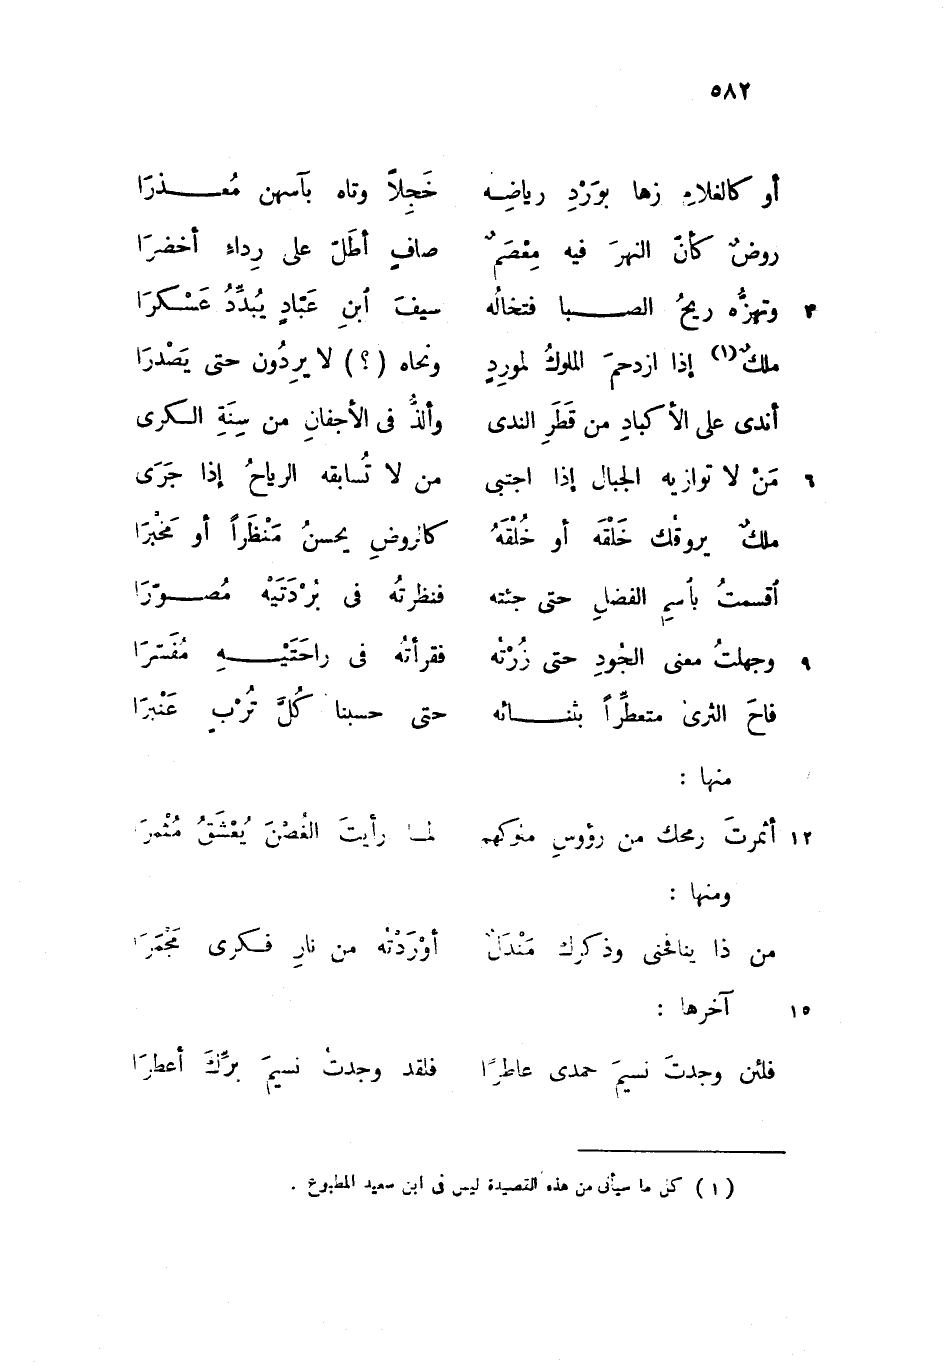 ٥٨٢
أو كالغلامِ زها بوَرْدِ رياضِه خَجِلاً وتاه بآسهن مُعــذرَا
روضٌ كأنّ النهرَ فيه مِعْصَمٌ صافٍ أطَلّ على رِداءٍ أخضرَا
٣ وتهزُّه ريحُ الصبا فتخالُه سيفَ ٱبنِ عَبّادٍ يُبدِّدُ عَسْكرَا
ملكٌ(١) إذا ازدحمَ الملوكُ لموردٍ ونحاه (؟) لا يرِدُون حتى يَصْدرَا
أندى على الأكبادِ من قَطَرِ الندى وألذُّ فى الأجفانِ من سِنَةِ الكرى
٦ مَنْ لا توازيه الجبال إذا اجتبى من لا تُسابقه الرياحُ إذا جَرَى
ملكٌ يروقك خَلْقَه أو خُلْقَهُ كالروضِ يحسنُ مَنْظَراً أو مَخْبَرَا
أقسمتُ بأسمِ الفضلِ حتى جئته فنظرتُه فى بُرْدَتَيْه مُصــوّرَا
٩ وجهلتُ معنى الجُودِ حتى زُرْتُه فقرأتُه فى راحَتَيْــهِ مُفَسّرَا
فاحَ الثرىٰ متعطِّراً بثنــائه حتى حسبنا كُلَّ تُرْبٍ عَنْبرَا
منها :
١٢ أثمرتَ رمحك من رؤوسِ ملوكهم لما رأيتَ الغُصْنَ يُعْشَقُ مُثْمرَا
ومنها :
من ذا ينافحنى وذكرك مَنْدَلٌ أوْرَدْتُه من نارِ فكرى مَجْمَرَا
١٥ آخرها :
فلئن وجدتَ نسيمَ حمدى عاطرًا فلقد وجدتُ نسيمَ برِّكَ أعطرَا
(١) كل ما سيأتى من هذه القصيدة ليس فى ابن سعيد المطبوع .